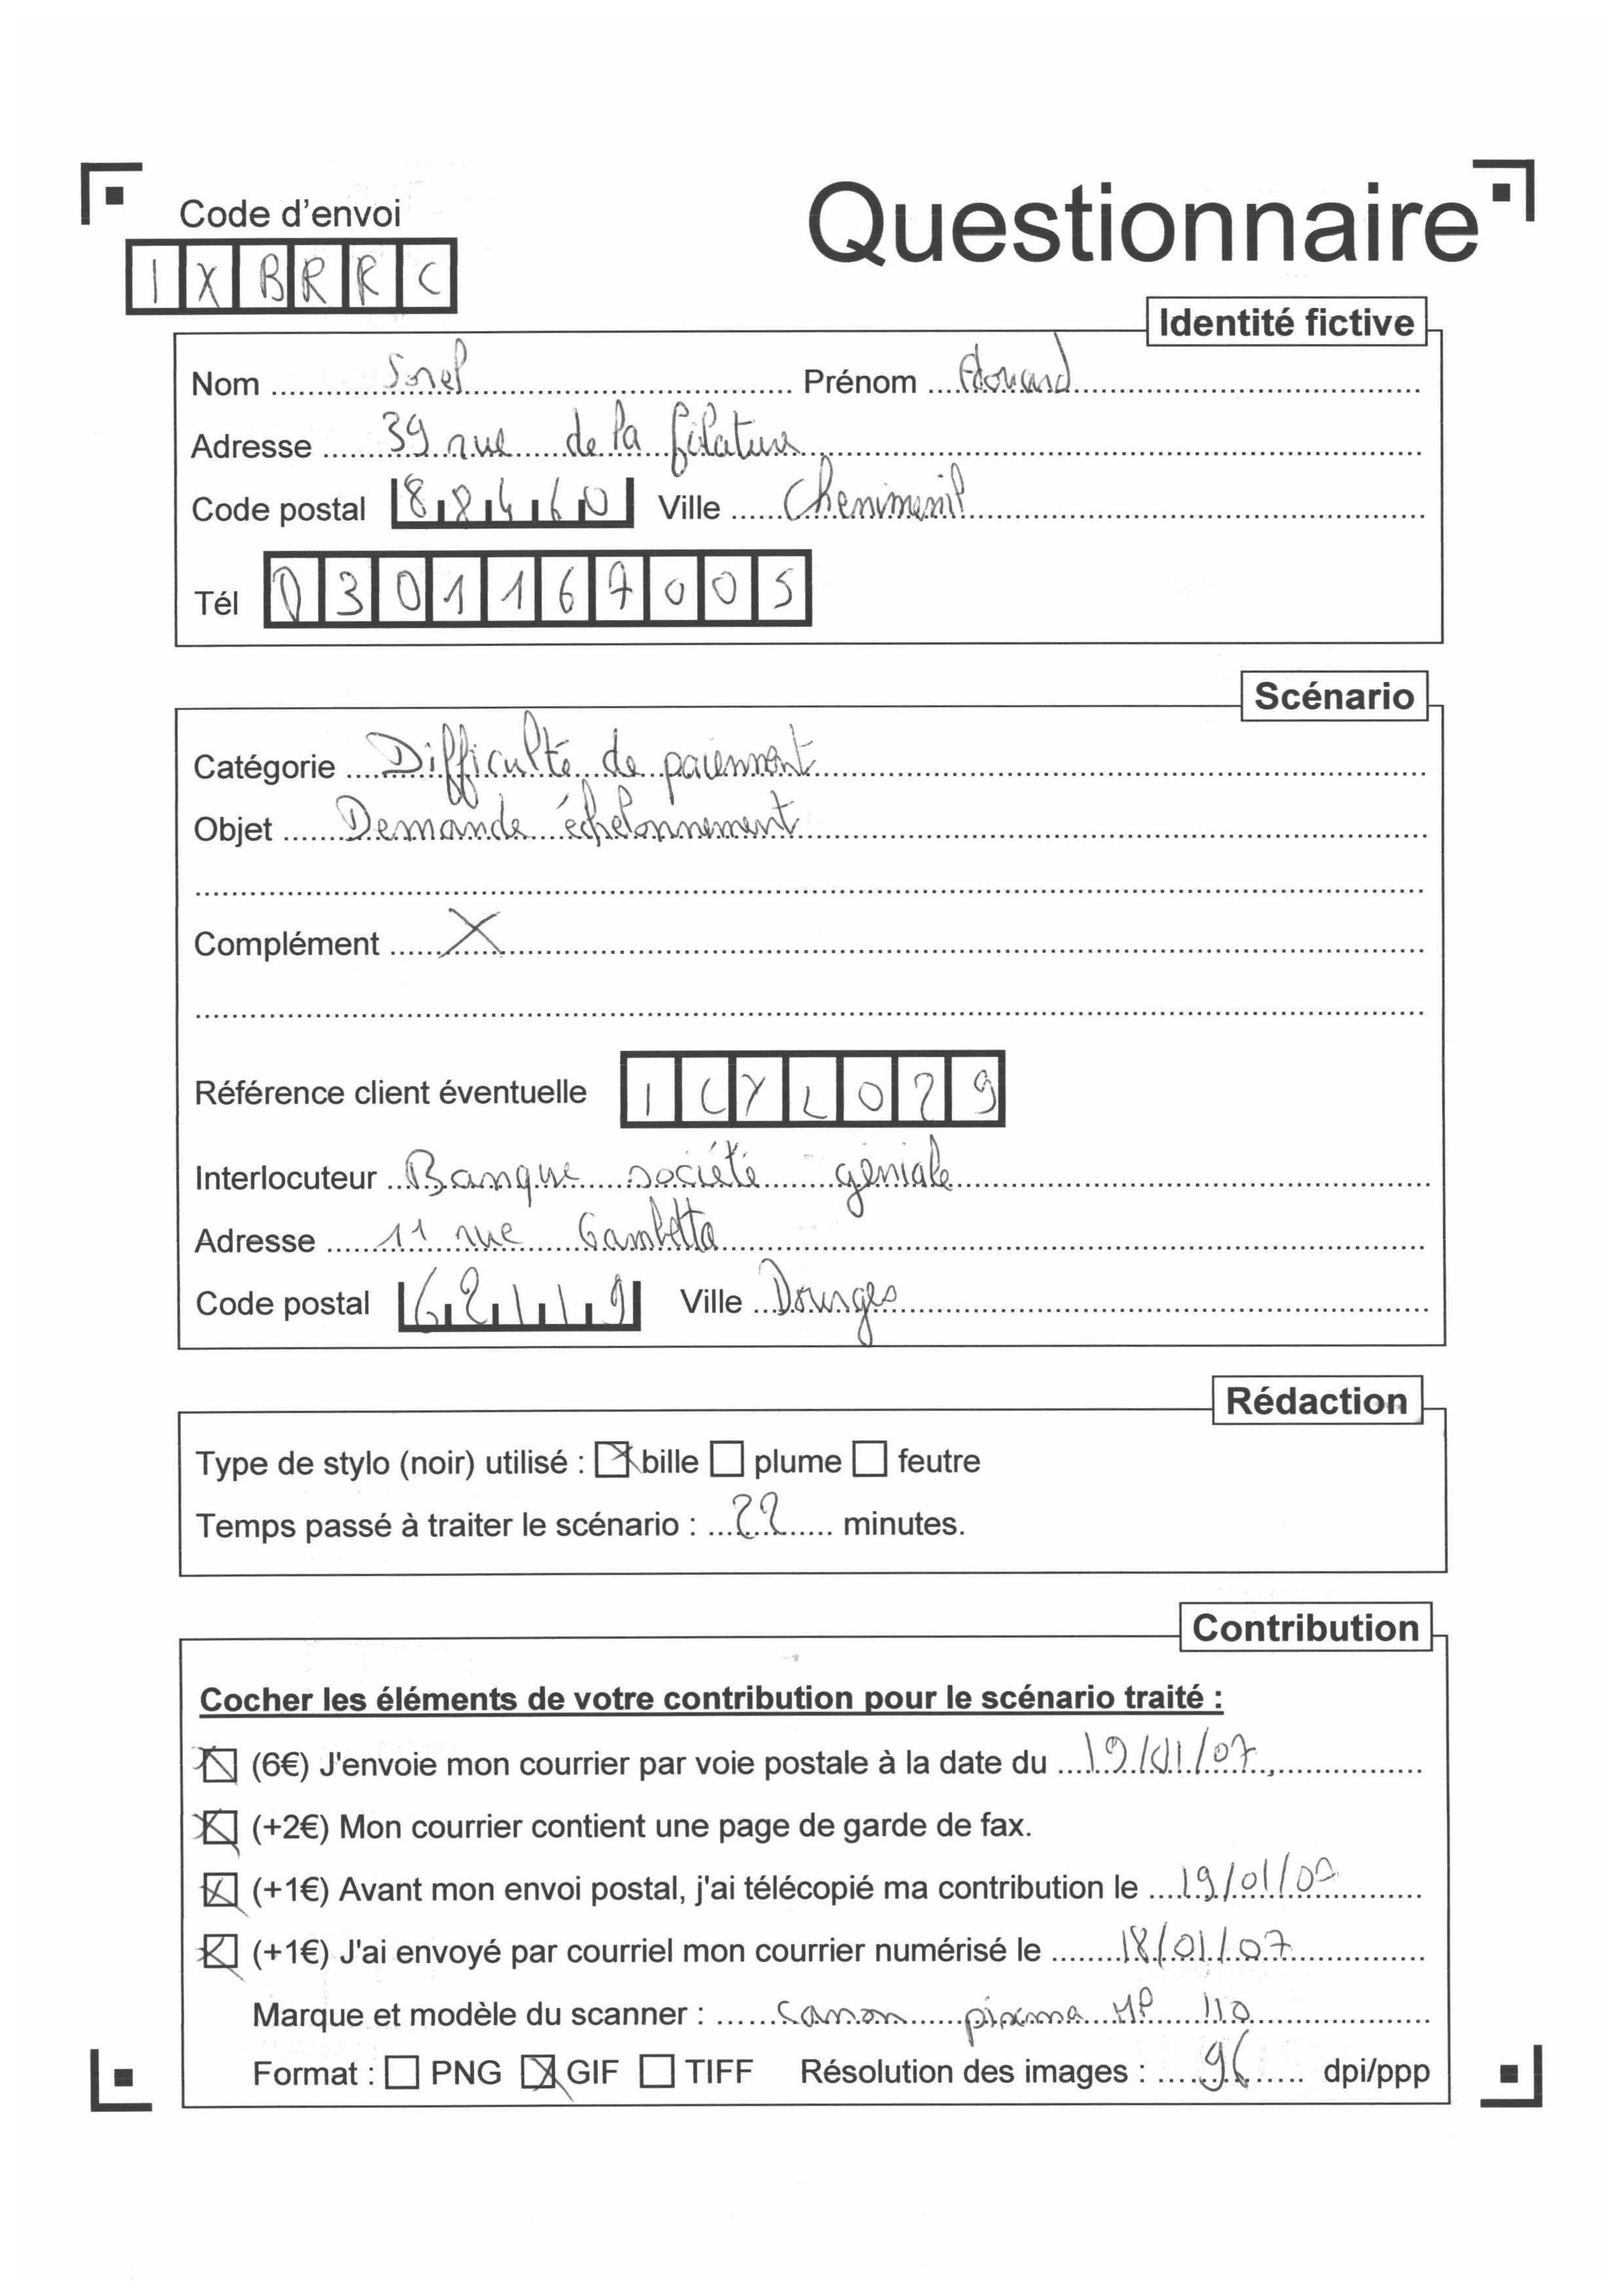 Code d'envoi
Questionnaire
IXBRRC
Identité fictive
Nom Sorel Prénom Edouard
Adresse 39 rue de la filature
Code postal 88460 Ville Chenimenil
Tél 0301167005
Scénario
Catégorie Difficulté de paiement
Objet Demande échelonnement
Complément X
Référence client éventuelle ICYL029
Interlocuteur Banque société géniale
Adresse 11 rue Gambetta
Code postal 62119 Ville Dourges
Rédaction
Type de stylo (noir) utilisé : bille plume feutre
Temps passé à traiter le scénario : 22 minutes.
Contribution
Cocher les éléments de votre contribution pour le scénario traité :
(6€) J'envoie mon courrier par voie postale à la date du 19/01/07
(+2€) Mon courrier contient une page de garde de fax.
(+1€) Avant mon envoi postal, j'ai télécopié ma contribution le 19/01/07
(+1€) J'ai envoyé par courriel mon courrier numérisé le 18/01/07
Marque et modèle du scanner : canon pixma MP 110
Format : PNG GIF TIFF Résolution des images : 96 dpi/ppp